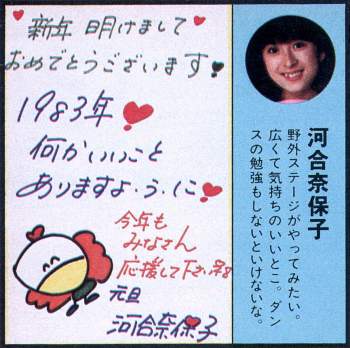 新年 明けまして
おめでとうございます
1983年
何かいいこと
ありますよ・う・に
今年も
みなさん
応援して下さい
元旦
河合奈保子
河合奈保子
野外ステージがやってみたい。
広くて気持ちのいいとこ。ダン
スの勉強もしないといけないな。